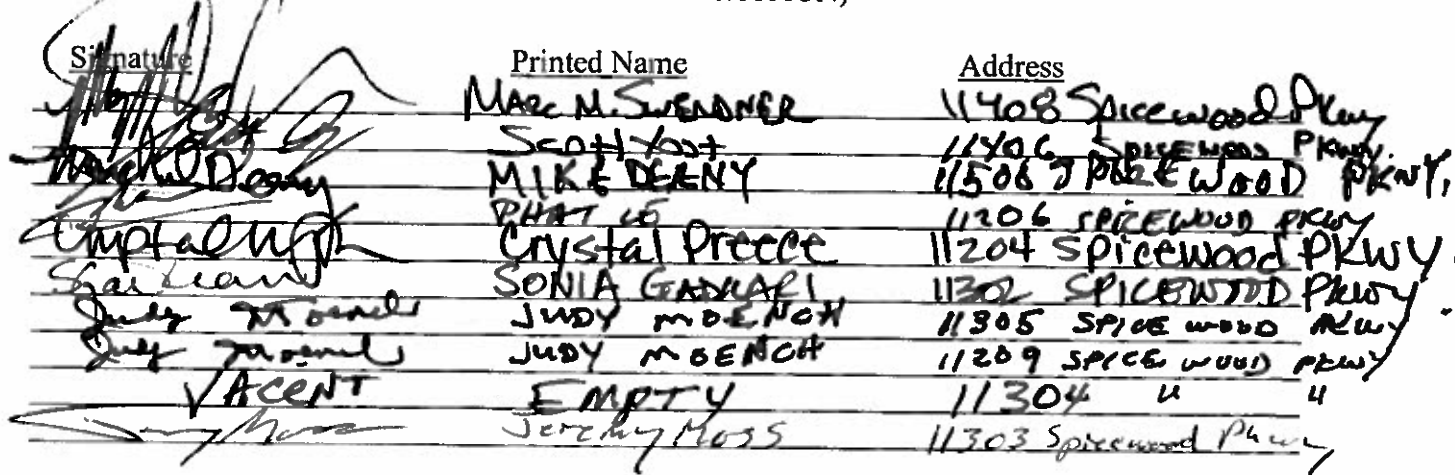 Signature Printed Name Address
MARC M. SWENDNER 11408 Spicewood Pkwy
Scott Yost 11406 SPICEWOOD PKWY.
Michael Deeny MIKE DEENY 11506 SPICEWOOD PKWY,
PHAT LE 11206 SPICEWOOD PKWY
Crystal Preece 11204 Spicewood PKWY.
SONIA GADKARI 11302 SPICEWOOD PKWY
Judy Moench JUDY MOENCH 11305 SPICE WOOD PKWY.
Judy Moench JUDY MOENCH 11209 SPICE WOOD PKWY
VACENT EMPTY 11304 " "
Jeremy Moss 11303 Spicewood Pkwy